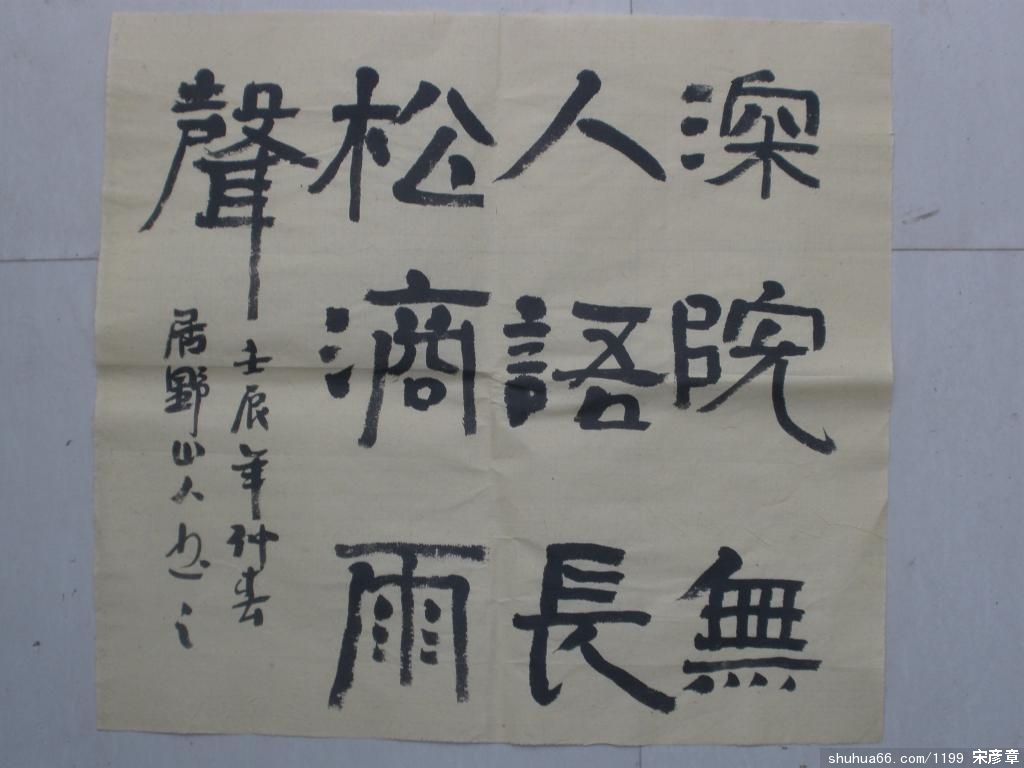 深院無
人語長
松滴雨
聲
壬辰年仲春
居野山人書之
shuhua66.com/1199 宋彦章